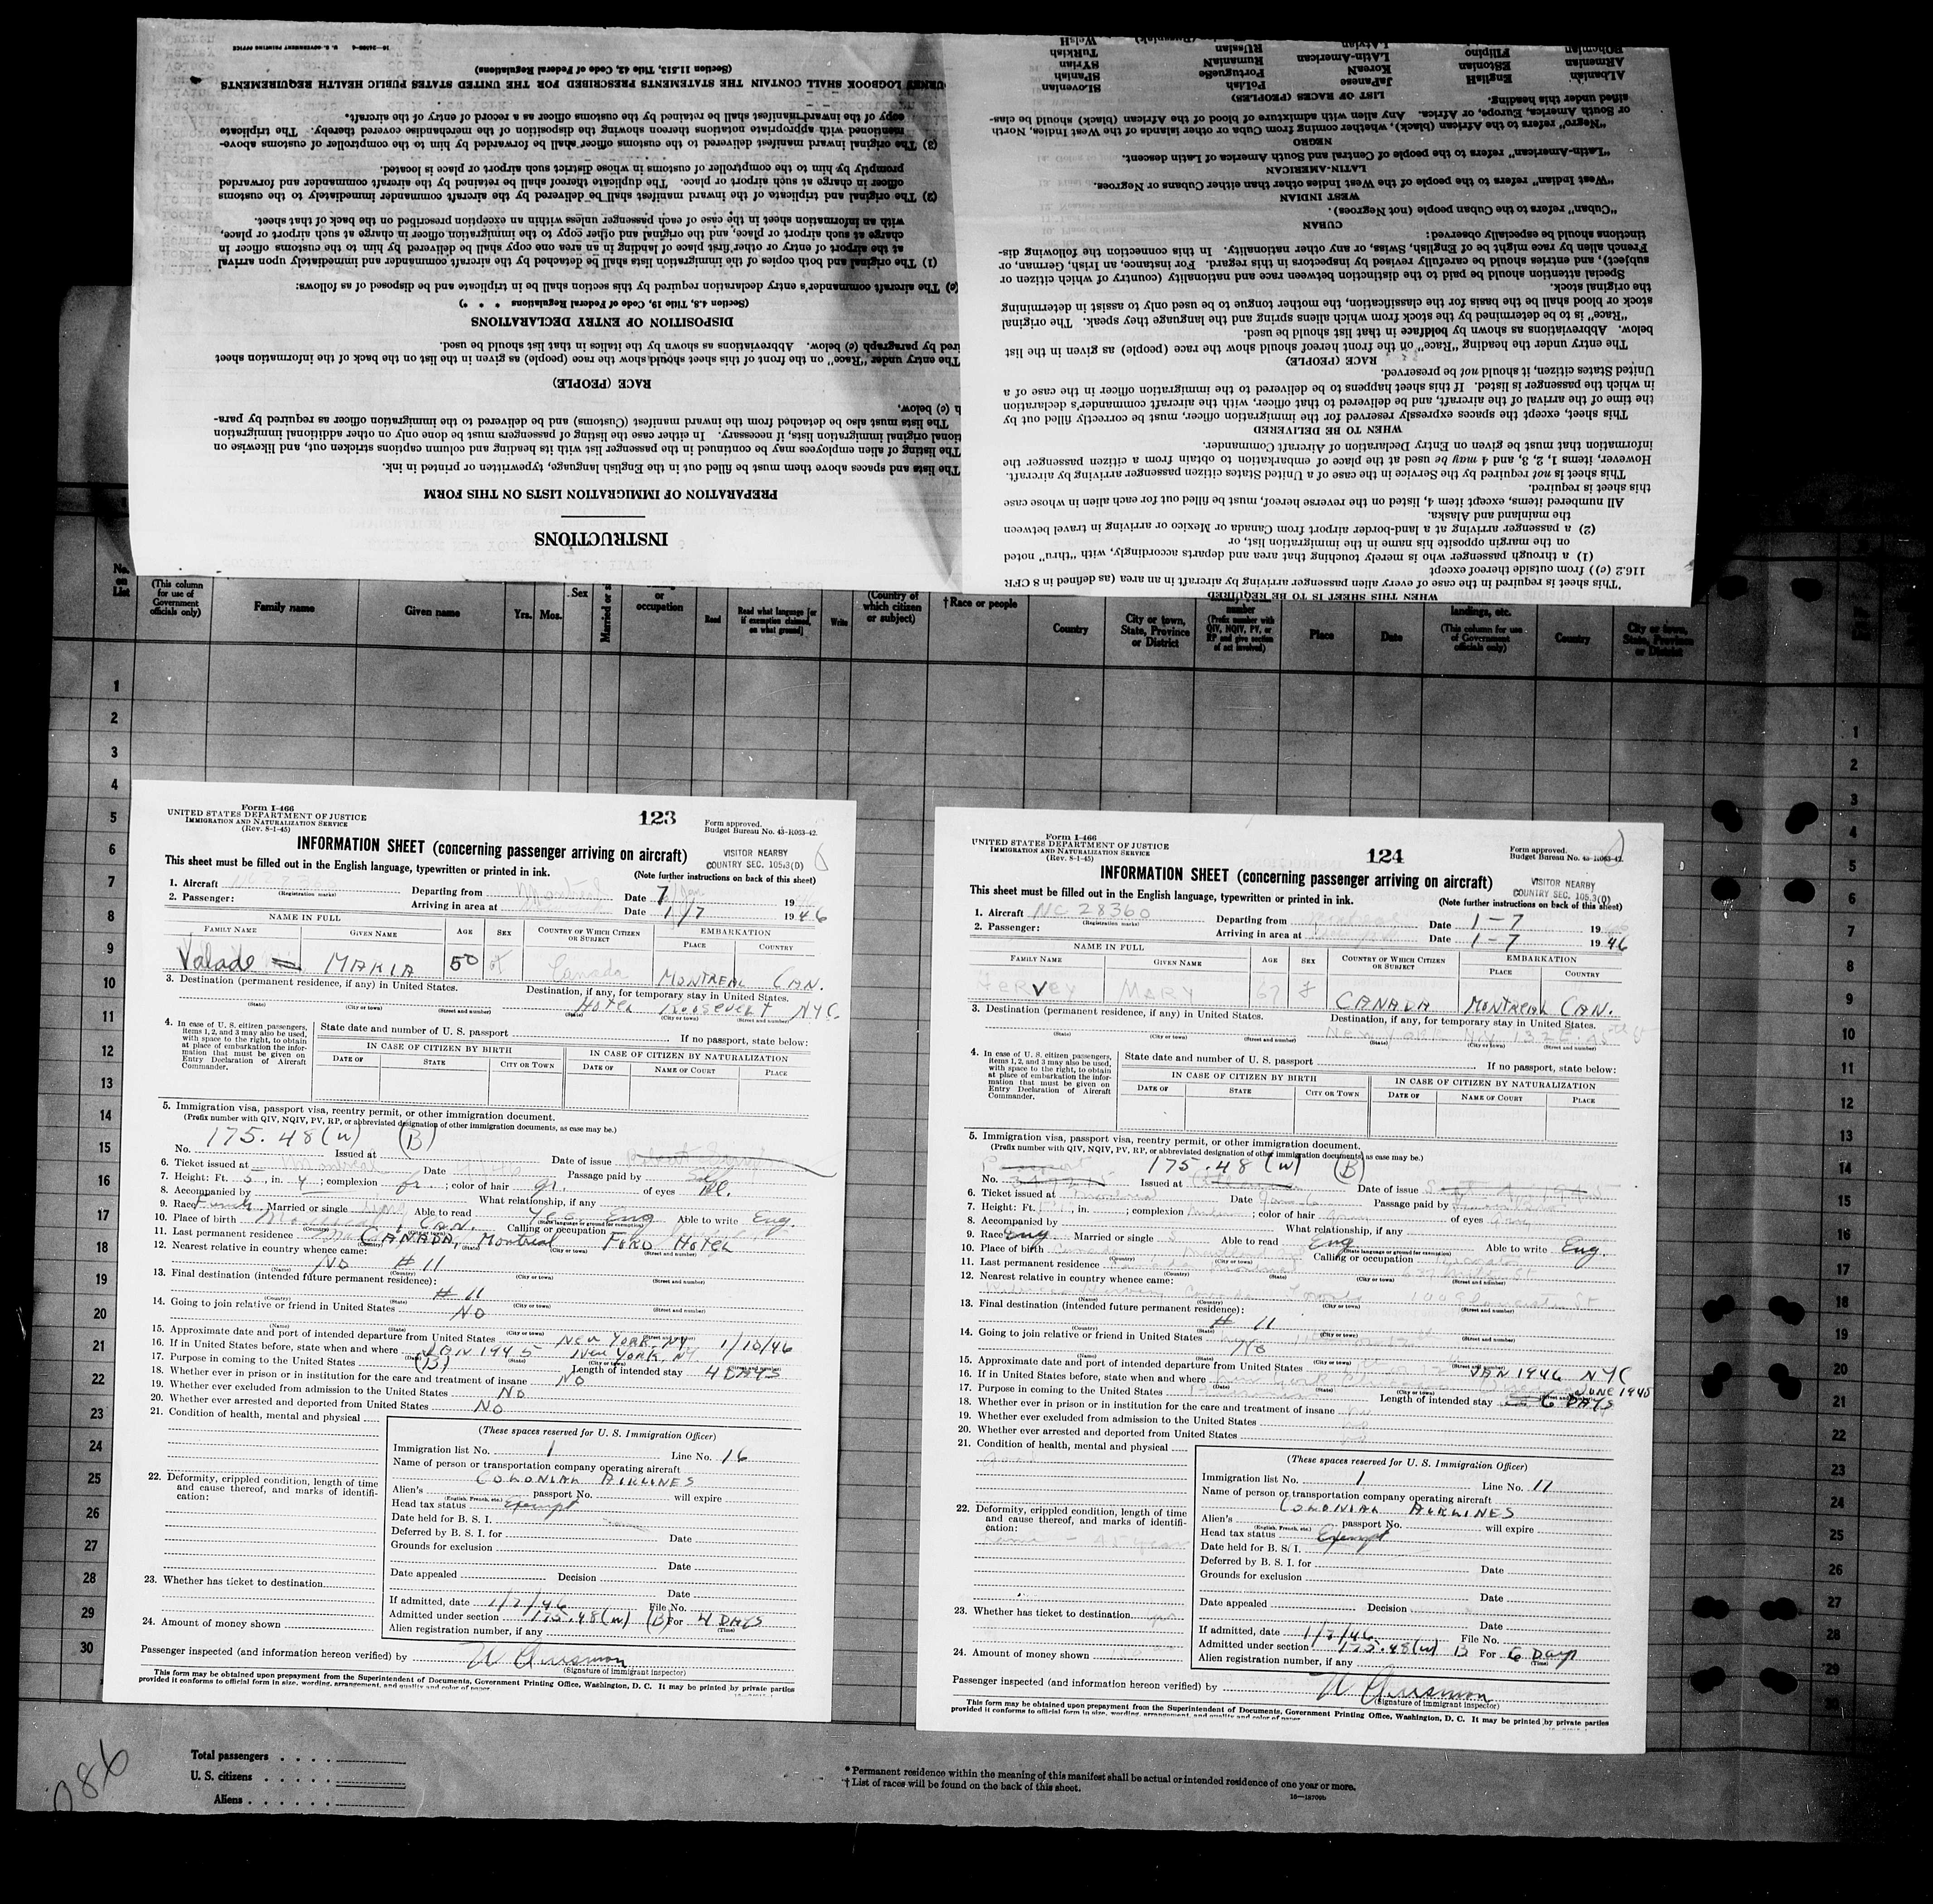 INSTRUCTIONS
PREPARATION OF IMMIGRATION LISTS ON THIS FORM
The lists and spaces above them must be filled out in the English language, typewritten or printed in ink.
The listing of alien employees may be continued in the passenger list with its heading and column captions stricken out, and likewise on
tional original immigration lists, if necessary. In either case the listing of passengers must be done only on other additional immigration
The lists must also be detached from the inward manifest (Customs) and be delivered to the immigration officer as required by para-
h (c) below.
RACE (PEOPLE)
The entry under "Race" on the front of this sheet should show the race (people) as given in the list on the back of the information sheet
ired by paragraph (c) below. Abbreviations as shown by the italics in that list should be used.
DISPOSITION OF ENTRY DECLARATIONS
(Section 4.8, Title 19, Code of Federal Regulations)
(c) The aircraft commander's entry declaration required by this section shall be in triplicate and be disposed of as follows:
(1) The original and both copies of the immigration lists shall be detached by the aircraft commander and immediately upon arrival
at the airport of entry or other first place of landing in an area one copy shall be delivered by him to the customs officer in
charge at such airport or place, and the original and other copy to the immigration officer in charge at such airport or place,
with an information sheet in the case of each passenger unless within an exception prescribed on the back of that sheet.
(2) The original and triplicate of the inward manifest shall be delivered by the aircraft commander immediately to the customs
officer in charge at such airport or place. The duplicate thereof shall be retained by the aircraft commander and forwarded
promptly by him to the comptroller of customs in whose district such airport or place is located.
(3) The original inward manifest delivered to the customs officer shall be forwarded by him to the comptroller of customs above-
mentioned with appropriate notations thereon showing the disposition of the merchandise covered thereby. The triplicate
copy of the inward manifest shall be retained by the customs officer as a record of entry of the aircraft.
LOGBOOK SHALL CONTAIN THE STATEMENTS PRESCRIBED FOR THE UNITED STATES PUBLIC HEALTH REQUIREMENTS
(Section 11.513, Title 42, Code of Federal Regulations)
U. S. GOVERNMENT PRINTING OFFICE
WHEN THIS SHEET IS TO BE REQUIRED
This sheet is required in the case of every alien passenger arriving by aircraft in an area (as defined in 8 CFR
116.2 (e)) from outside thereof except
(1) a through passenger who is merely touching that area and departs accordingly, with "thru" noted
on the margin opposite his name in the immigration list, or
(2) a passenger arriving at a land-border airport from Canada or Mexico or arriving in travel between
the mainland and Alaska.
All numbered items, except item 4, listed on the reverse hereof, must be filled out for each alien in whose case
this sheet is required.
This sheet is not required by the Service in the case of a United States citizen passenger arriving by aircraft.
However, items 1, 2, 3, and 4 may be used at the place of embarkation to obtain from a citizen passenger the
information that must be given on Entry Declaration of Aircraft Commander.
WHEN TO BE DELIVERED
This sheet, except the spaces expressly reserved for the immigration officer, must be correctly filled out by
the time of the arrival of the aircraft, and be delivered to that officer, with the aircraft commander's declaration
in which the passenger is listed. If this sheet happens to be delivered to the immigration officer in the case of a
United States citizen, it should not be preserved.
RACE (PEOPLE)
The entry under the heading "Race" on the front hereof should show the race (people) as given in the list
below. Abbreviations as shown by boldface in that list should be used.
"Race" is to be determined by the stock from which aliens spring and the language they speak. The original
stock or blood shall be the basis for the classification, the mother tongue to be used only to assist in determining
the original stock.
Special attention should be paid to the distinction between race and nationality (country of which citizen or
subject), and entries should be carefully revised by inspectors in this regard. For instance, an Irish, German, or
French alien by race might be of English, Swiss, or any other nationality. In this connection the following dis-
tinctions should be especially observed:
CUBAN
"Cuban" refers to the Cuban people (not Negroes).
WEST INDIAN
"West Indian" refers to the people of the West Indies other than either Cubans or Negroes.
LATIN-AMERICAN
"Latin-American" refers to the people of Central and South America of Latin descent.
NEGRO
"Negro" refers to the African (black), whether coming from Cuba or other islands of the West Indies, North
or South America, Europe, or Africa. Any alien with admixture of blood of the African (black) should be clas-
sified under this heading.
LIST OF RACES (PEOPLES)
Albanian EnglisH JaPanese PoLish SLovenian
ARmenian EStonian KoreaN Portuguese SPanish
BOhemian Filipino LAtin-American RumaniaN SYrian
RUssian TurKish
WelsH
No. on List
(This column for use of Government officials only)
Family name Given name Yrs. Mos. Sex Married or s or occupation Read Read what language [or if exemption claimed, on what ground] Write (Country of which citizen or subject) †Race or people Country City or town, State, Province or District number (Prefix number with QIV, NQIV, PV, or RP and give section of act involved) Place Date landings, etc. (This column for use of Government officials only) Country City or town, State, Province or District
1
2
3
4
5
6
7
8
9
10
11
12
13
14
15
16
17
18
19
20
21
22
23
24
25
26
27
28
29
30
Form I-466
UNITED STATES DEPARTMENT OF JUSTICE
IMMIGRATION AND NATURALIZATION SERVICE
(Rev. 8-1-45)
123
Form approved.
Budget Bureau No. 43-R063-42.
INFORMATION SHEET (concerning passenger arriving on aircraft)
VISITOR NEARBY
COUNTRY SEC. 105.3(D)
This sheet must be filled out in the English language, typewritten or printed in ink.
(Note further instructions on back of this sheet)
1. Aircraft (Registration marks) Departing from Montreal Date 7 Jan 19
2. Passenger: Arriving in area at Date 1/7 1946
NAME IN FULL AGE SEX COUNTRY OF WHICH CITIZEN OR SUBJECT EMBARKATION
FAMILY NAME GIVEN NAME PLACE COUNTRY
Valade MARIA 50 f Canada MONTREAL CAN.
3. Destination (permanent residence, if any) in United States. Destination, if any, for temporary stay in United States.
Hotel Roosevelt NYC
(State) (City or town) (Street and number) (State) (City or town) (Street and number)
4. In case of U. S. citizen passengers, items 1, 2, and 3 may also be used, with space to the right, to obtain at place of embarkation the information that must be given on Entry Declaration of Aircraft Commander.
State date and number of U. S. passport If no passport, state below:
IN CASE OF CITIZEN BY BIRTH IN CASE OF CITIZEN BY NATURALIZATION
DATE OF STATE CITY OR TOWN DATE OF NAME OF COURT PLACE
5. Immigration visa, passport visa, reentry permit, or other immigration document.
(Prefix number with QIV, NQIV, PV, RP, or abbreviated designation of other immigration documents, as case may be.)
175.48(w) (B)
No. Issued at Date of issue
6. Ticket issued at Montreal Date Passage paid by Self
7. Height: Ft. 5, in. 4; complexion fr.; color of hair gr. of eyes bl.
8. Accompanied by What relationship, if any
9. Race French Married or single Sing Able to read Yes Eng (State language or ground for exemption) Able to write Eng.
10. Place of birth Montreal, CAN. Calling or occupation
11. Last permanent residence CANADA, Montreal FORD HOTEL
12. Nearest relative in country whence came: NO # 11
13. Final destination (intended future permanent residence): # 11
14. Going to join relative or friend in United States NO
15. Approximate date and port of intended departure from United States NEW YORK, NY 1/10/46
16. If in United States before, state when and where JAN 1945 NEW YORK, NY
17. Purpose in coming to the United States (B) Length of intended stay 4 DAYS
18. Whether ever in prison or in institution for the care and treatment of insane NO
19. Whether ever excluded from admission to the United States NO
20. Whether ever arrested and deported from United States NO
21. Condition of health, mental and physical
22. Deformity, crippled condition, length of time and cause thereof, and marks of identification:
23. Whether has ticket to destination
24. Amount of money shown
(These spaces reserved for U. S. Immigration Officer)
Immigration list No. 1 Line No. 16
Name of person or transportation company operating aircraft
COLONIAL AIRLINES
Alien's (English, French, etc.) passport No. will expire
Head tax status Exempt
Date held for B. S. I.
Deferred by B. S. I. for Date
Grounds for exclusion
Date
Date appealed Decision
Date
If admitted, date 1/7/46 File No.
Admitted under section 175.48(w) (B) For 4 DAYS (Time)
Alien registration number, if any
Passenger inspected (and information hereon verified) by
(Signature of immigrant inspector)
This form may be obtained upon prepayment from the Superintendent of Documents, Government Printing Office, Washington, D. C. It may be printed by private parties
provided it conforms to official form in size, wording, arrangement, and quality and color of paper.
Form I-466
UNITED STATES DEPARTMENT OF JUSTICE
IMMIGRATION AND NATURALIZATION SERVICE
(Rev. 8-1-45)
124
Form approved.
Budget Bureau No. 43-R063-42.
INFORMATION SHEET (concerning passenger arriving on aircraft)
VISITOR NEARBY
COUNTRY SEC. 105.3(D)
This sheet must be filled out in the English language, typewritten or printed in ink.
(Note further instructions on back of this sheet)
1. Aircraft NC 28360 (Registration marks) Departing from Date 1-7 19
2. Passenger: Arriving in area at Date 1-7 1946
NAME IN FULL AGE SEX COUNTRY OF WHICH CITIZEN OR SUBJECT EMBARKATION
FAMILY NAME GIVEN NAME PLACE COUNTRY
HERVEY MARY 67 f CANADA MONTREAL CAN.
3. Destination (permanent residence, if any) in United States. Destination, if any, for temporary stay in United States.
(State) (City or town) (Street and number) (State) (City or town) (Street and number)
4. In case of U. S. citizen passengers, items 1, 2, and 3 may also be used, with space to the right, to obtain at place of embarkation the information that must be given on Entry Declaration of Aircraft Commander.
State date and number of U. S. passport If no passport, state below:
IN CASE OF CITIZEN BY BIRTH IN CASE OF CITIZEN BY NATURALIZATION
DATE OF STATE CITY OR TOWN DATE OF NAME OF COURT PLACE
5. Immigration visa, passport visa, reentry permit, or other immigration document.
(Prefix number with QIV, NQIV, PV, RP, or abbreviated designation of other immigration documents, as case may be.)
175.48(w) (B)
No. Issued at Date of issue Sept 4 1945
6. Ticket issued at Montreal Date Jan 6 Passage paid by
7. Height: Ft. in. ; complexion ; color of hair gray of eyes gray
8. Accompanied by What relationship, if any
9. Race Eng Married or single S Able to read Eng (State language or ground for exemption) Able to write Eng.
10. Place of birth Canada Calling or occupation
11. Last permanent residence Canada Montreal
12. Nearest relative in country whence came: Canada Toronto
13. Final destination (intended future permanent residence): # 11
14. Going to join relative or friend in United States No
15. Approximate date and port of intended departure from United States JAN 1946 NYC
16. If in United States before, state when and where New York JUNE 1945
17. Purpose in coming to the United States Length of intended stay 6 DAYS
18. Whether ever in prison or in institution for the care and treatment of insane
19. Whether ever excluded from admission to the United States
20. Whether ever arrested and deported from United States
21. Condition of health, mental and physical
Good
22. Deformity, crippled condition, length of time and cause thereof, and marks of identification:
23. Whether has ticket to destination yes
24. Amount of money shown
(These spaces reserved for U. S. Immigration Officer)
Immigration list No. 1 Line No. 17
Name of person or transportation company operating aircraft
COLONIAL AIRLINES
Alien's (English, French, etc.) passport No. will expire
Head tax status Exempt
Date held for B. S. I.
Deferred by B. S. I. for Date
Grounds for exclusion
Date
Date appealed Decision
Date
If admitted, date 1/7/46 File No.
Admitted under section 175.48(w) B For 6 Days (Time)
Alien registration number, if any
Passenger inspected (and information hereon verified) by
(Signature of immigrant inspector)
This form may be obtained upon prepayment from the Superintendent of Documents, Government Printing Office, Washington, D. C. It may be printed by private parties
provided it conforms to official form in size, wording, arrangement, and quality and color of paper.
Total passengers
U. S. citizens
Aliens
* Permanent residence within the meaning of this manifest shall be actual or intended residence of one year or more.
† List of races will be found on the back of this sheet.
16—18709b